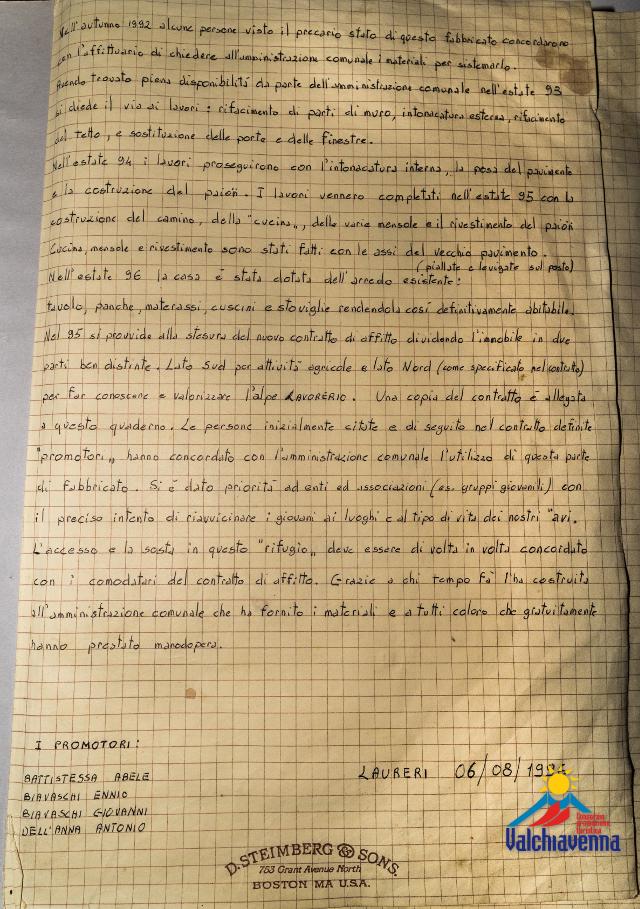 Nell'autunno 1992 alcune persone visto il precario stato di questo fabbricato concordarono
con l'affittuario di chiedere all'amministrazione comunale i materiali per sistemarlo.
Avendo trovato piena disponibilità da parte dell'amministrazione comunale nell'estate 93
si diede il via ai lavori: rifacimento di parti di muro, intonacatura esterna, rifacimento
del tetto, e sostituzione delle porte e delle finestre.
Nell'estate 94 i lavori proseguirono con l'intonacatura interna, la posa del pavimento
e la costruzione del paiön. I lavori vennero completati nell'estate 95 con la
costruzione del camino, della "cucina„, delle varie mensole e il rivestimento del paiön
Cucina, mensole e rivestimento sono stati fatti con le assi del vecchio pavimento.
(piallate e levigate sul posto)
Nell'estate 96 la casa è stata dotata dell'arredo esistente:
tavolo, panche, materassi, cuscini e stoviglie rendendola così definitivamente abitabile.
Nel 95 si provvide alla stesura del nuovo contratto di affitto dividendo l'immobile in due
parti ben distinte. Lato Sud per attività agricole e lato Nord (come specificato nel contratto)
per far conoscere e valorizzare l'alpe LAVORERIO. Una copia del contratto è allegata
a questo quaderno. Le persone inizialmente citate e di seguito nel contratto definite
"promotori„ hanno concordato con l'amministrazione comunale l'utilizzo di questa parte
di fabbricato. Si è dato priorità ad enti ed associazioni (es. gruppi giovanili) con
il preciso intento di riavvicinare i giovani ai luoghi e al tipo di vita dei nostri "avi.
L'accesso e la sosta in questo "rifugio„ deve essere di volta in volta concordato
con i comodatari del contratto di affitto. Grazie a chi tempo fà l'ha costruita
all'amministrazione comunale che ha fornito i materiali e a tutti coloro che gratuitamente
hanno prestato manodopera.
I PROMOTORI:
BATTISTESSA ABELE
BIAVASCHI ENNIO
BIAVASCHI GIOVANNI
DELL'ANNA ANTONIO
LAURERI 06/08/199
Consorzio
promozione
turistica
Valchiavenna
D. STEIMBERG & SONS.
753 Grant Avenue North
BOSTON MA U.S.A.